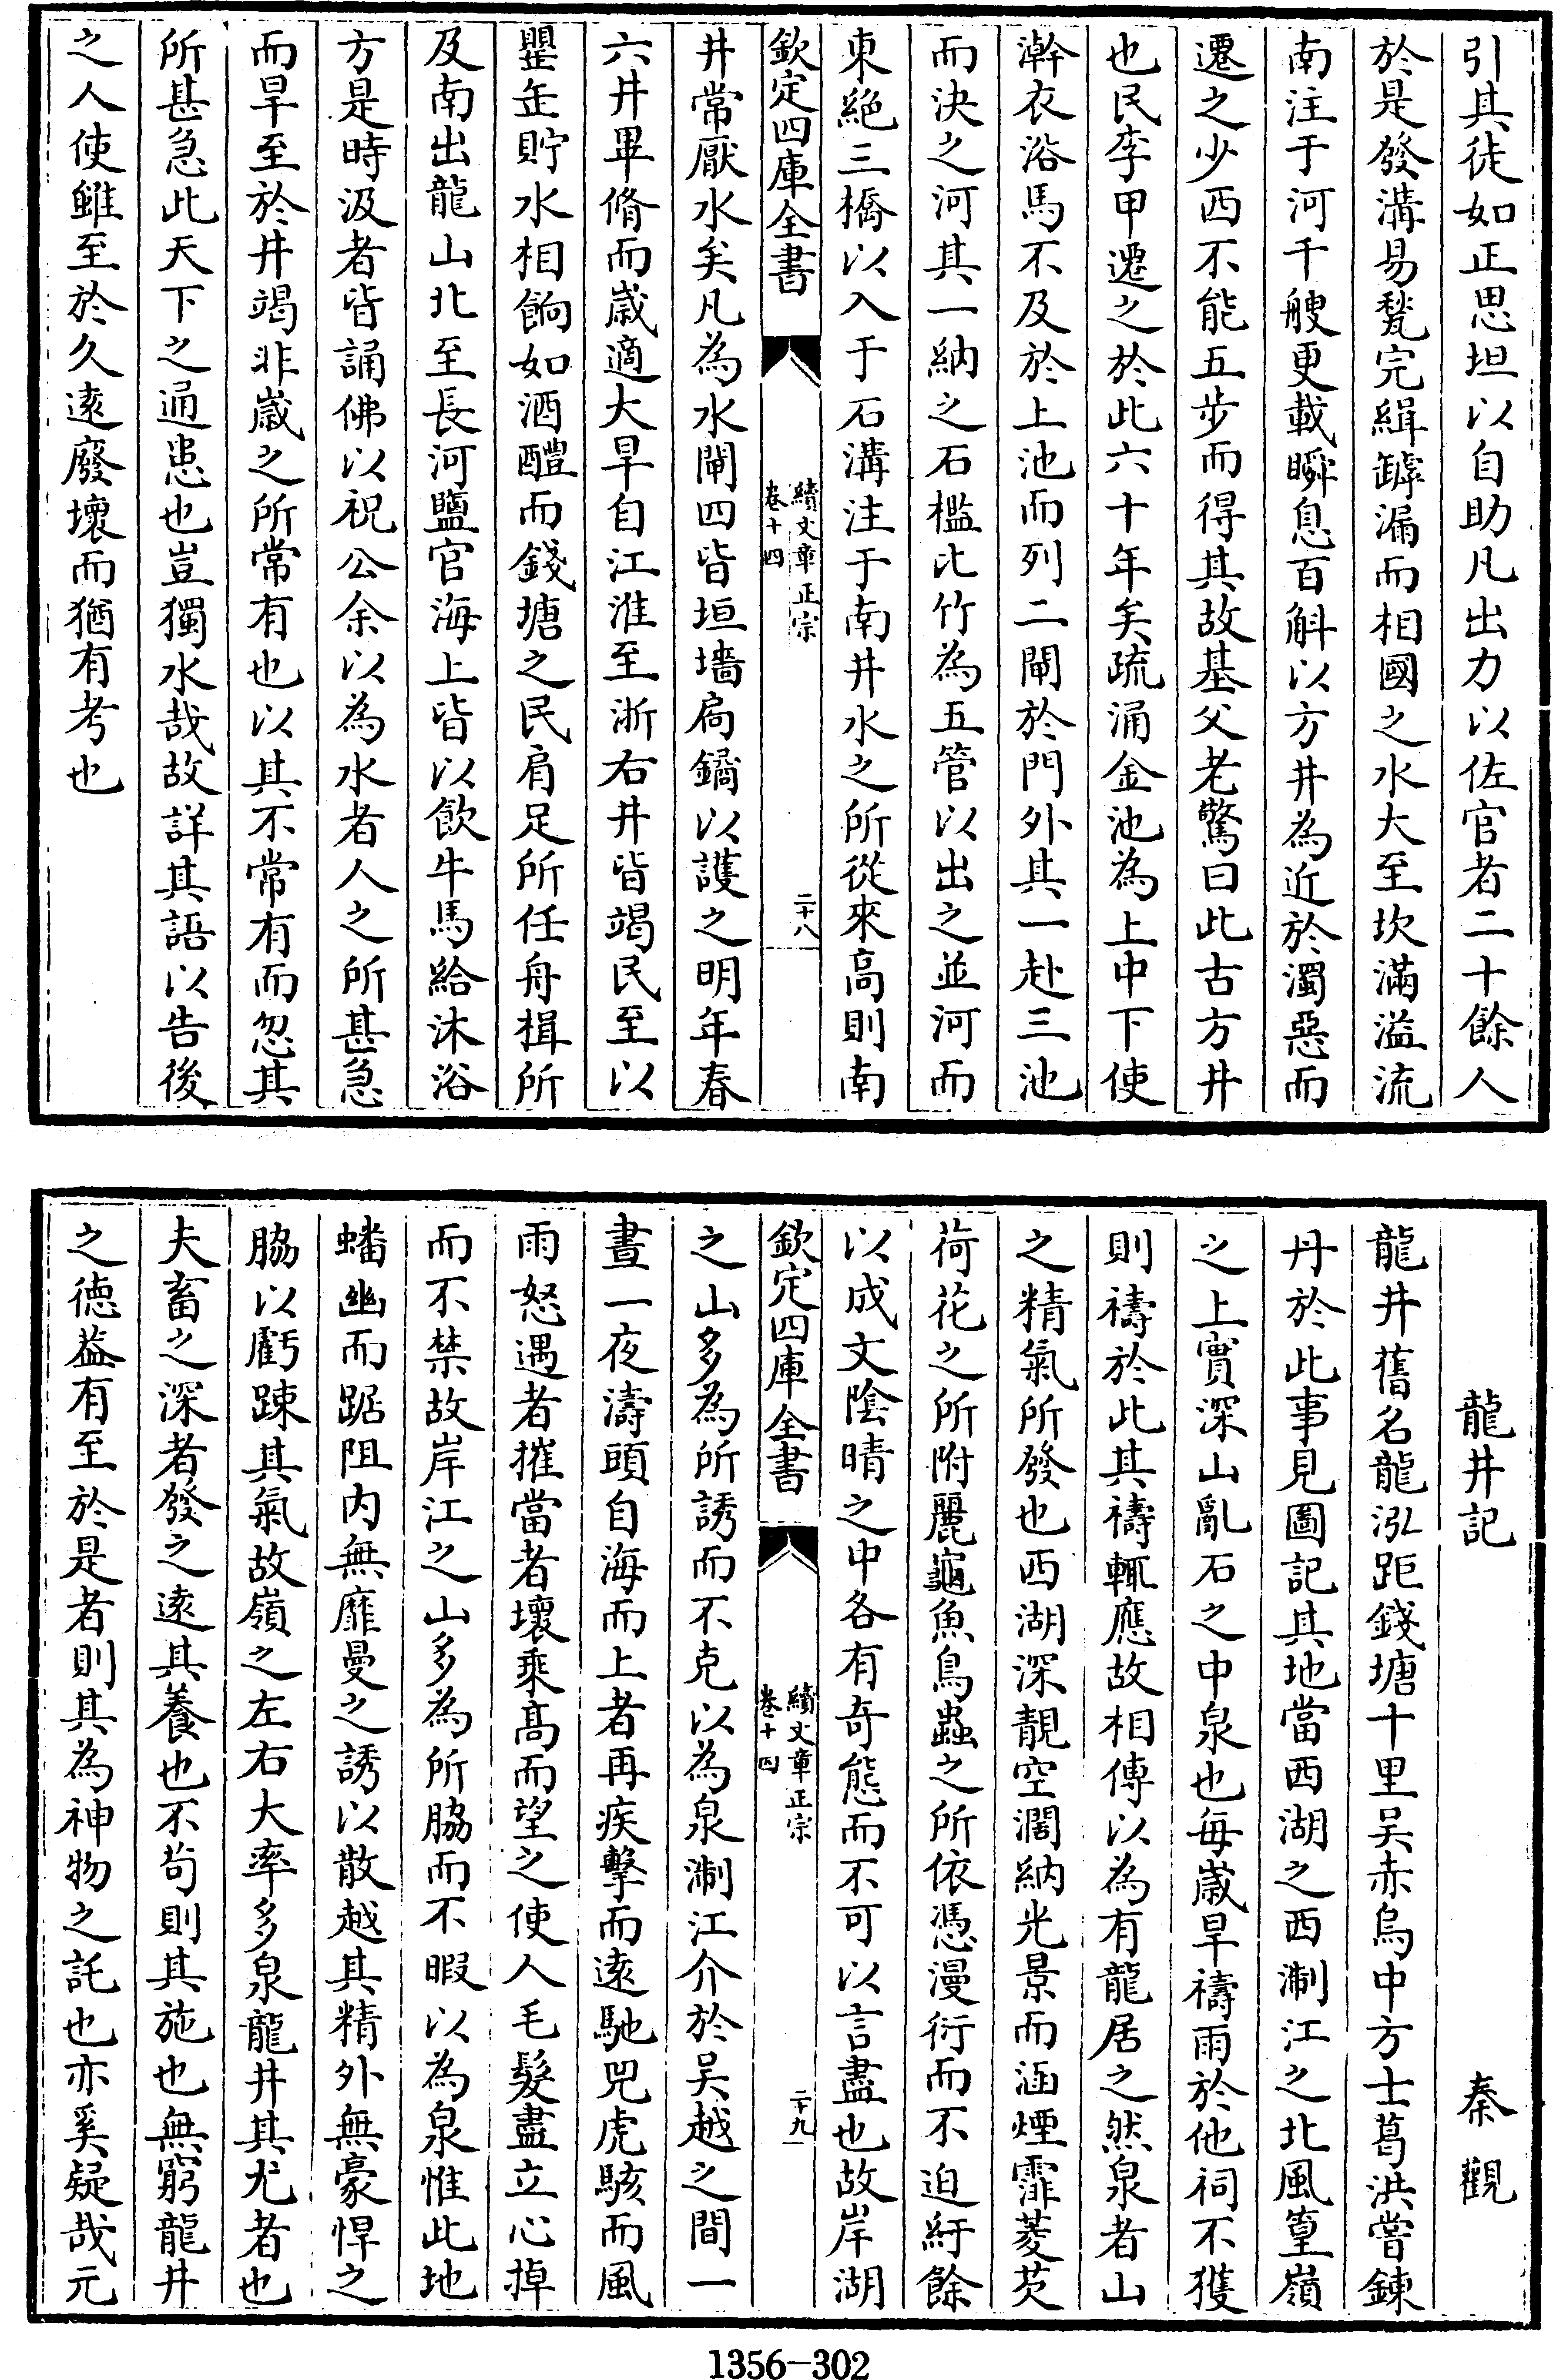 引其徒如正思坦以自助凡出力以佐官者二十餘人
於是發溝易甃完緝罅漏而相國之水大至坎滿溢流
南注于河千艘更載瞬息百斛以方井為近於濁惡而
遷之少西不能五步而得其故基父老驚曰此古方井
也民李甲遷之於此六十年矣疏涌金池為上中下使
澣衣浴馬不及於上池而列二閘於門外其一赴三池
而決之河其一納之石檻比竹為五管以出之並河而
東絕三橋以入于石溝注于南井水之所從來高則南
欽定四庫全書
續文章正宗
卷十四
二十八
井常厭水矣凡為水閘四皆垣墻扃鐍以護之明年春
六井畢脩而歲適大旱自江淮至浙右井皆竭民至以
罌缶貯水相餉如酒醴而錢塘之民肩足所任舟楫所
及南出龍山北至長河鹽官海上皆以飲牛馬給沐浴
方是時汲者皆誦佛以祝公余以為水者人之所甚急
而旱至於井竭非歲之所常有也以其不常有而忽其
所甚急此天下之通患也豈獨水哉故詳其語以告後
之人使雖至於久遠廢壞而猶有考也
龍井記
秦觀
龍井舊名龍泓距錢塘十里吳赤烏中方士葛洪嘗鍊
丹於此事見圖記其地當西湖之西淛江之北風篁嶺
之上實深山亂石之中泉也每歲旱禱雨於他祠不獲
則禱於此其禱輒應故相傳以為有龍居之然泉者山
之精氣所發也西湖深靚空濶納光景而涵煙霏菱芡
荷花之所附麗龜魚鳥蟲之所依憑漫衍而不迫紆餘
以成文陰晴之中各有奇態而不可以言盡也故岸湖
欽定四庫全書
續文章正宗
卷十四
二十九
之山多為所誘而不克以為泉淛江介於吳越之間一
晝一夜濤頭自海而上者再疾擊而遠馳兕虎駭而風
雨怒遇者摧當者壞乘高而望之使人毛髮盡立心掉
而不禁故岸江之山多為所脇而不暇以為泉惟此地
蟠幽而踞阻内無靡曼之誘以散越其精外無豪悍之
脇以虧踈其氣故嶺之左右大率多泉龍井其尤者也
夫畜之深者發之遠其養也不苟則其施也無窮龍井
之德益有至於是者則其為神物之託也亦奚疑哉元
1356-302